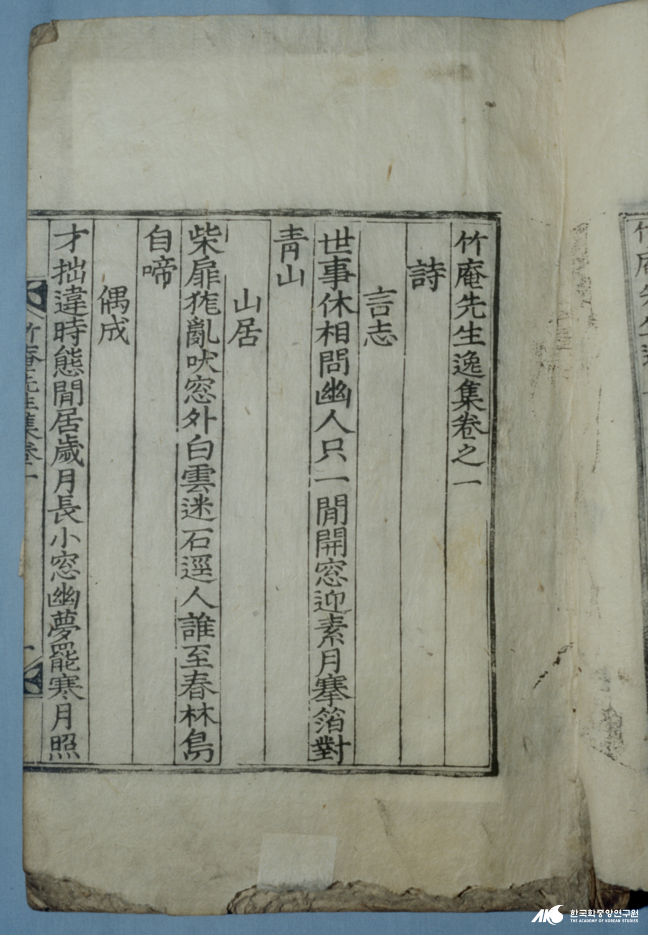 竹庵先生逸集卷之一
詩
言志
世事休相問幽人只一閒開窓迎素月搴箔對
青山
山居
柴扉尨亂吠窓外白雲迷石逕人誰至春林鳥
自啼
偶成
才拙違時態閒居歲月長小窓幽夢罷寒月照
竹庵先生集卷一
竹庵先生
한국학중앙연구원
THE ACADEMY OF KOREAN STUDIES